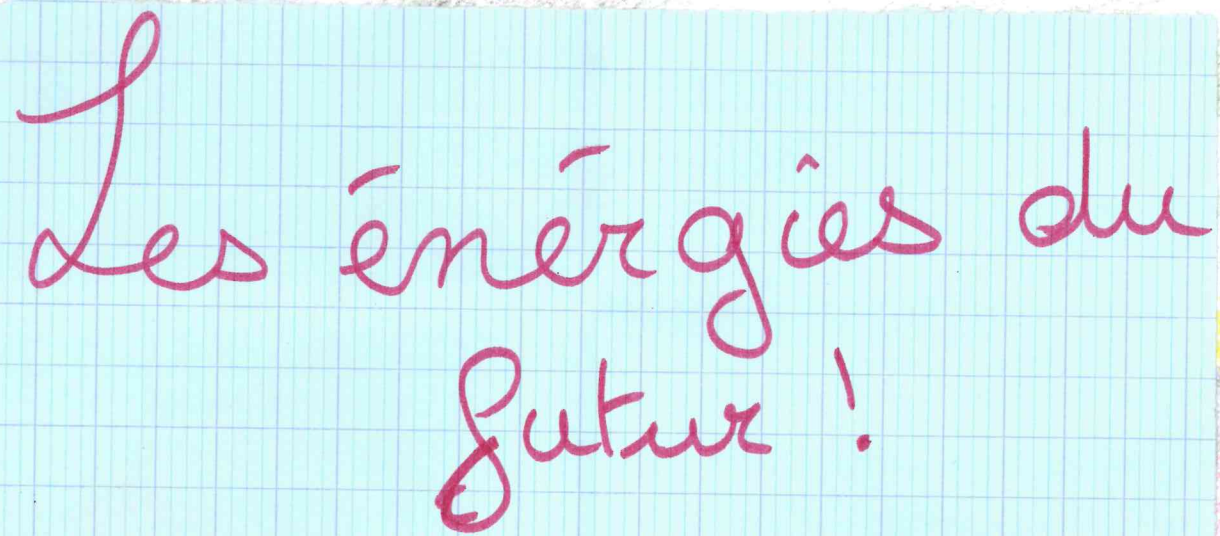 Les énérgies du
futur !